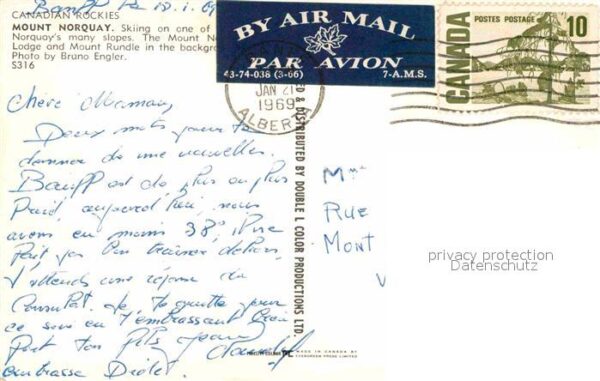 CANADIAN ROCKIES
MOUNT NORQUAY. Skiing on one of
Norquay's many slopes. The Mount No
Lodge and Mount Rundle in the backgro
Photo by Bruno Engler.
S316
Banff le 18.1.69
Chère Maman,
Deux mots pour te
donner de une nouvelles.
Banff est de plus en plus
froid, aujourd'hui nous
avons en moins 38°,
fait pas bon traîner dehors,
J'attends une réponse du
Consulat. Je te quitte pour
ce soir en t'embrassant bien
fort ton fils
embrasse
BY AIR MAIL
PAR AVION
43-74-038 (3-66)
7-A.M.S.
JAN 21
1969
ALBERT
CANADA
POSTES POSTAGE
10
ED & DISTRIBUTED BY DOUBLE L COLOR PRODUCTIONS LTD.
MADE IN CANADA BY
EVERGREEN PRESS LIMITED
Mme
RUE
MONT
V
privacy protection
Datenschutz